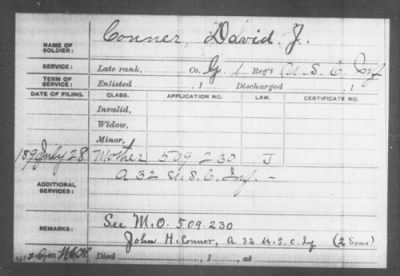 Conner, David J.
NAME OF SOLDIER:
SERVICE: Late rank, Co. G, 6 Reg't U.S.C. Inf
TERM OF SERVICE: Enlisted , 1 Discharged , 1
DATE OF FILING. CLASS. APPLICATION NO. LAW. CERTIFICATE NO.
Invalid,
Widow,
Minor,
189 July 28 Mother 509 230 J
ADDITIONAL SERVICES: A 32 U.S.C. Inf. -
REMARKS: See M.O. 509.230
John H. Conner, A 32 U.S.C. Inf (2 Sons)
Died , 1 , at